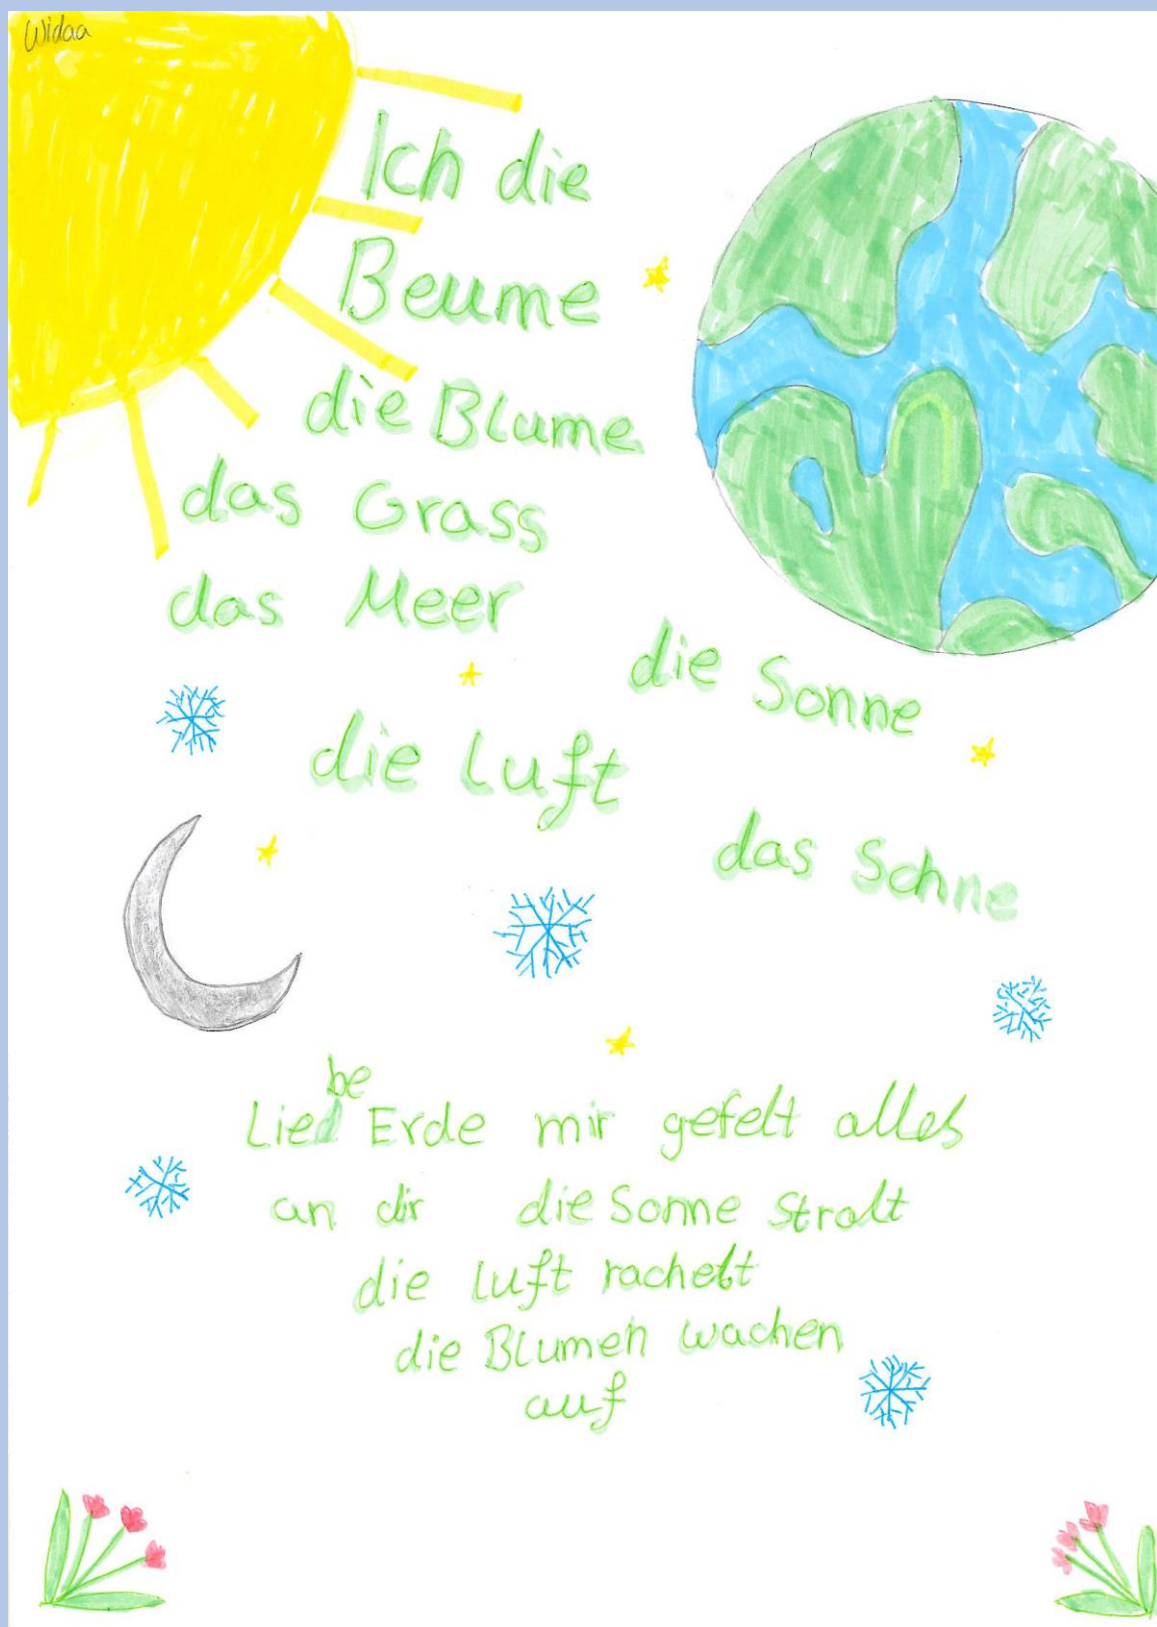 Widaa
Ich die
Beume
die Blume
das Grass
das Meer
die Sonne
die Luft
das Schne
be
Lied Erde mir gefelt alles
an dir die Sonne Stralt
die Luft rachelt
die Blumen wachen
auf